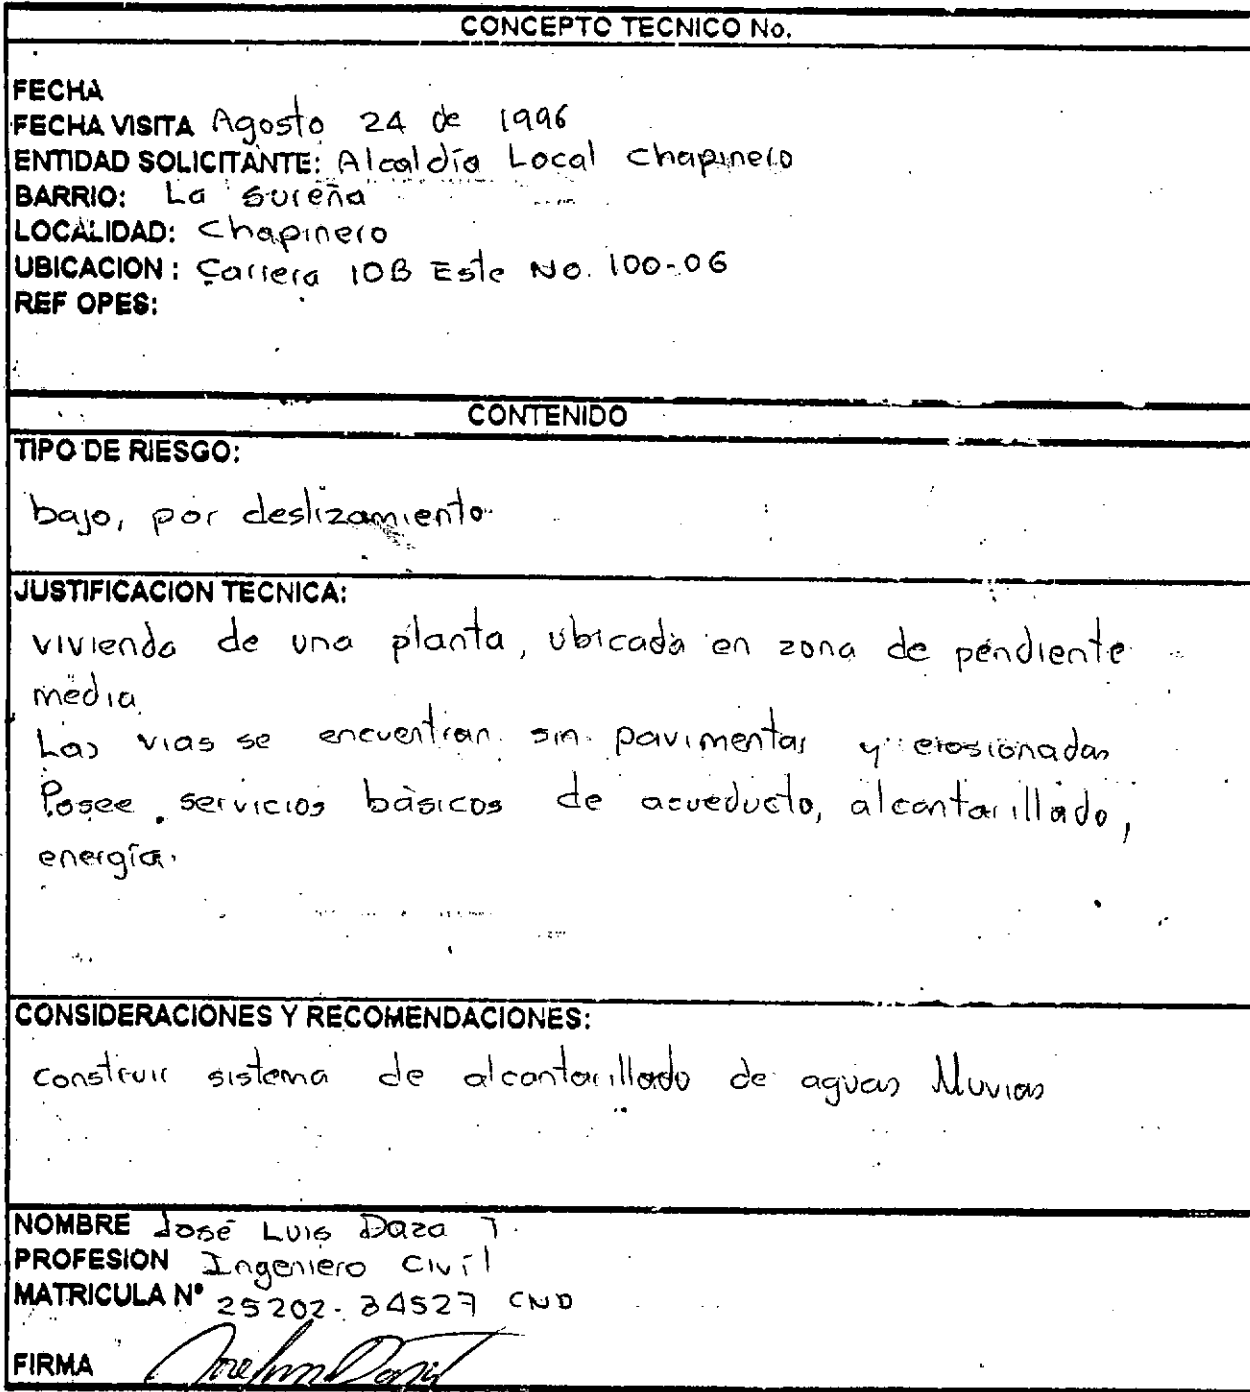 CONCEPTO TECNICO No.
FECHA
FECHA VISITA Agosto 24 de 1996
ENTIDAD SOLICITANTE: Alcaldía Local Chapinero
BARRIO: La Sureña
LOCALIDAD: Chapinero
UBICACION: Carrera 10B Este No. 100-06
REF OPES:
CONTENIDO
TIPO DE RIESGO:
bajo, por deslizamiento
JUSTIFICACION TECNICA:
vivienda de una planta, ubicada en zona de pendiente
media
Las vias se encuentran sin pavimentar y erosionadas
Posee servicios básicos de acueducto, alcantarillado,
energía.
CONSIDERACIONES Y RECOMENDACIONES:
construir sistema de alcantarillado de aguas lluvias
NOMBRE José Luis Daza T.
PROFESION Ingeniero Civil
MATRICULA Nº 25202-34527 CND
FIRMA